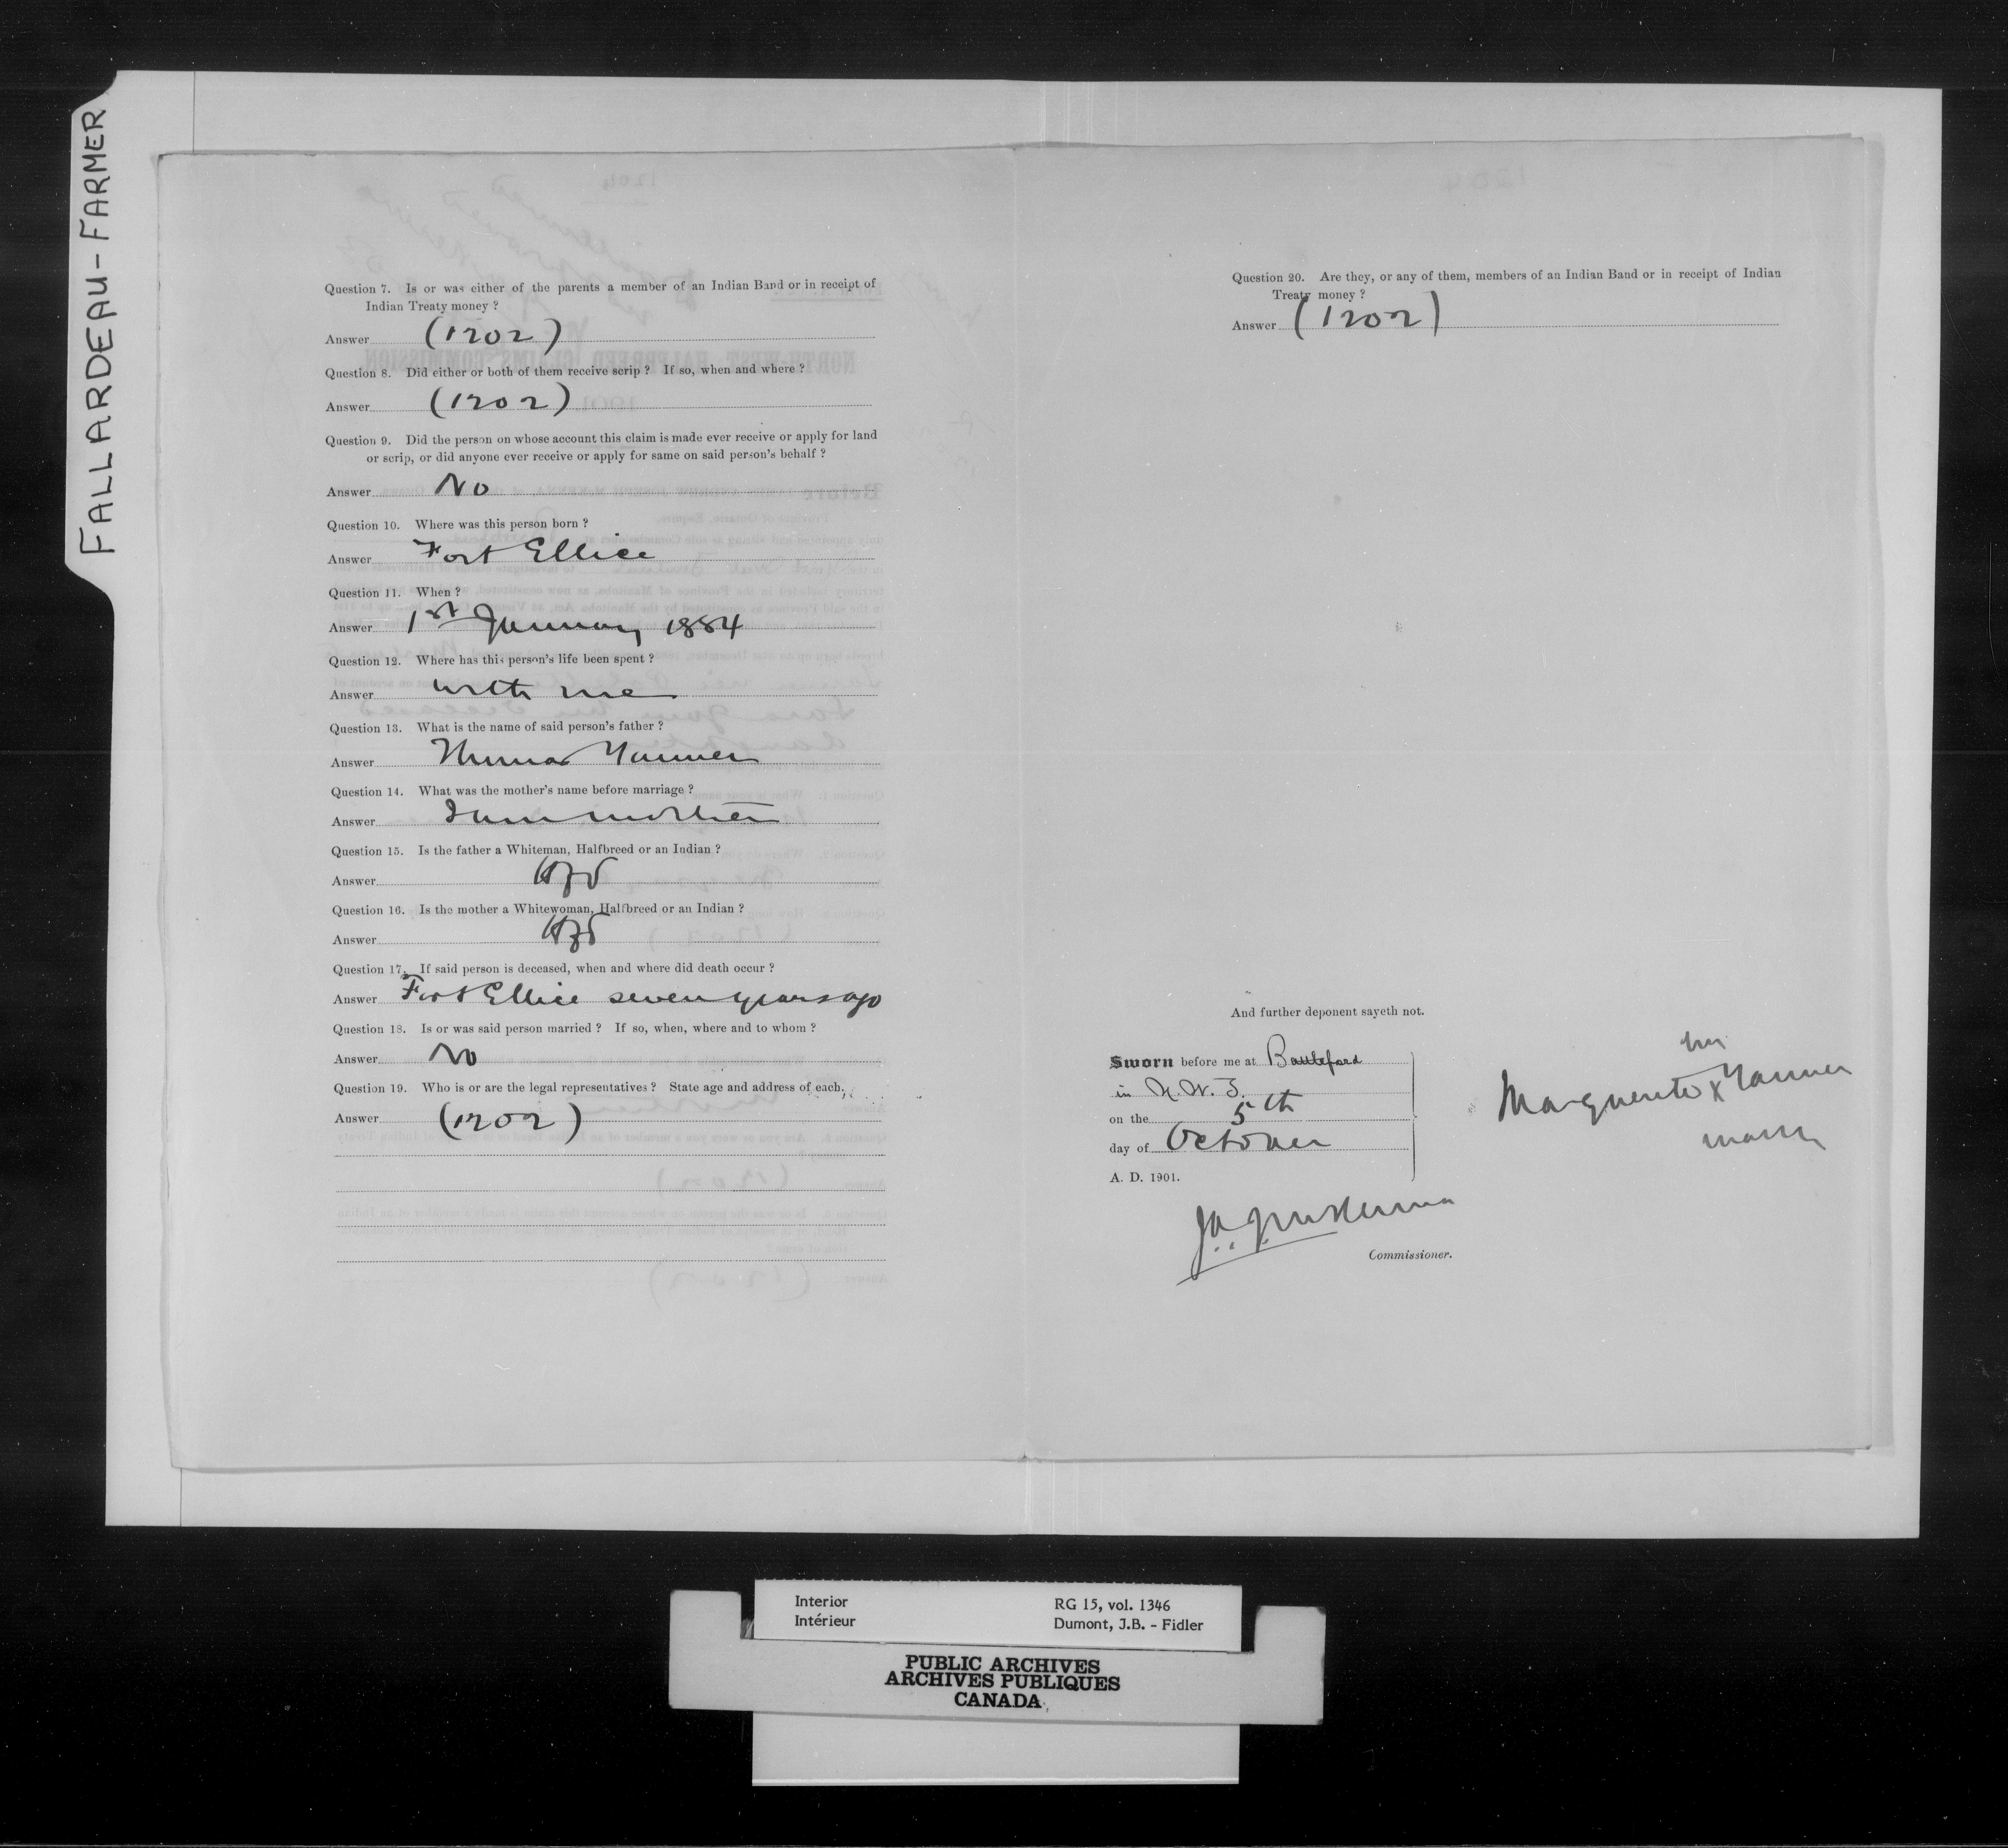 FALLARDEAU - FARMER
Question 7. Is or was either of the parents a member of an Indian Band or in receipt of
Indian Treaty money ?
Answer (1202)
Question 8. Did either or both of them receive scrip ? If so, when and where ?
Answer (1202)
Question 9. Did the person on whose account this claim is made ever receive or apply for land
or scrip, or did anyone ever receive or apply for same on said person's behalf ?
Answer No
Question 10. Where was this person born ?
Answer Fort Ellice
Question 11. When ?
Answer 1st January 1884
Question 12. Where has this person's life been spent ?
Answer with me
Question 13. What is the name of said person's father ?
Answer Thomas Farmer
Question 14. What was the mother's name before marriage ?
Answer I am mother
Question 15. Is the father a Whiteman, Halfbreed or an Indian ?
Answer
Question 16. Is the mother a Whitewoman, Halfbreed or an Indian ?
Answer
Question 17. If said person is deceased, when and where did death occur ?
Answer Fort Ellice seven years ago
Question 18. Is or was said person married ? If so, when, where and to whom ?
Answer No
Question 19. Who is or are the legal representatives ? State age and address of each.
Answer (1202)
Question 20. Are they, or any of them, members of an Indian Band or in receipt of Indian
Treaty money ?
Answer (1202)
And further deponent sayeth not.
Sworn before me at Battleford
in N.W.T.
on the 5th
day of October
A. D. 1901.
her
Marguerite X Farmer
mark
J.A.J. McKenna
Commissioner.
Interior
Intérieur
RG 15, vol. 1346
Dumont, J.B. - Fidler
PUBLIC ARCHIVES
ARCHIVES PUBLIQUES
CANADA